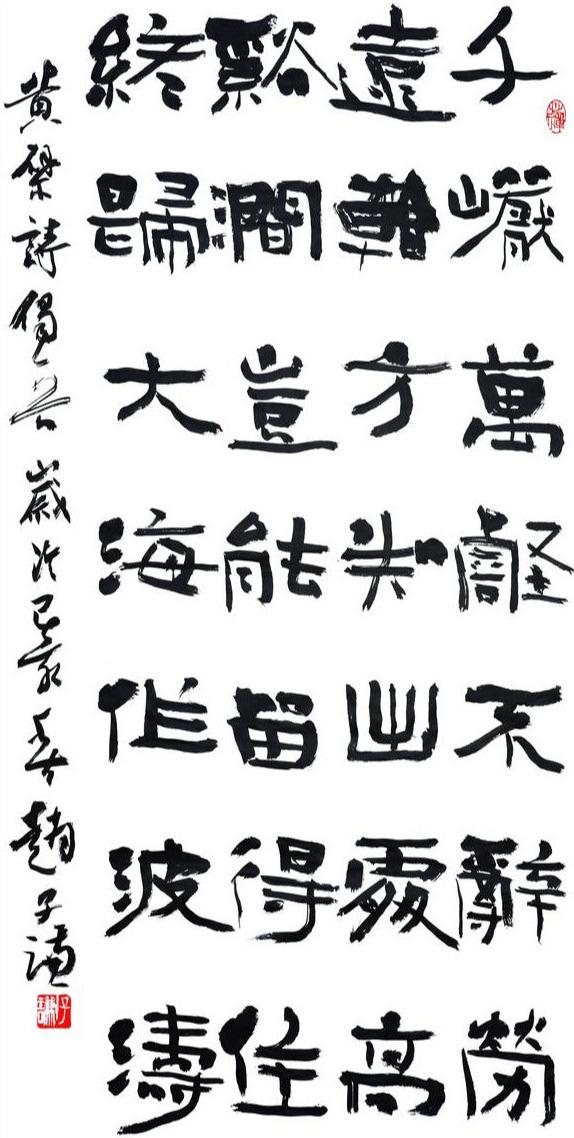 千巖萬壑不辭勞
遠看方知出處高
谿澗豈能留得住
終歸大海作波濤
黃檗詩偈一首 歲次己亥春 趙子謙
子謙